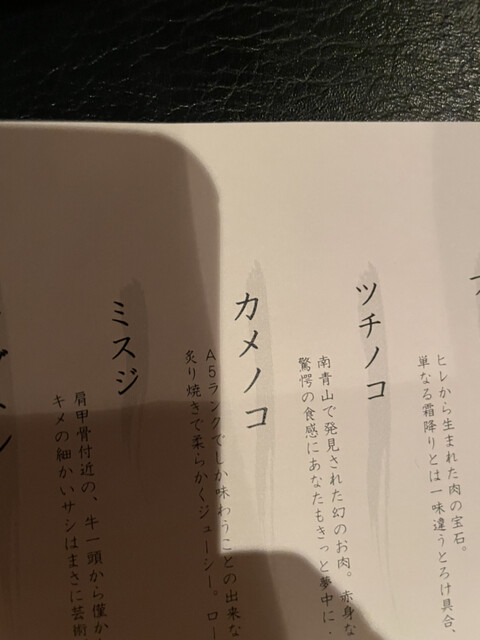 ヒレから生まれた肉の宝石。
単なる霜降りとは一味違うとろけ具合、
ツチノコ
南青山で発見された幻のお肉。赤身な
驚愕の食感にあなたもきっと夢中に
カメノコ
A5ランクでしか味わうことの出来な
炙り焼きで柔らかくジューシー。ロー
ミスジ
肩甲骨付近の、牛一頭から僅か
キメの細かいサシはまさに芸術